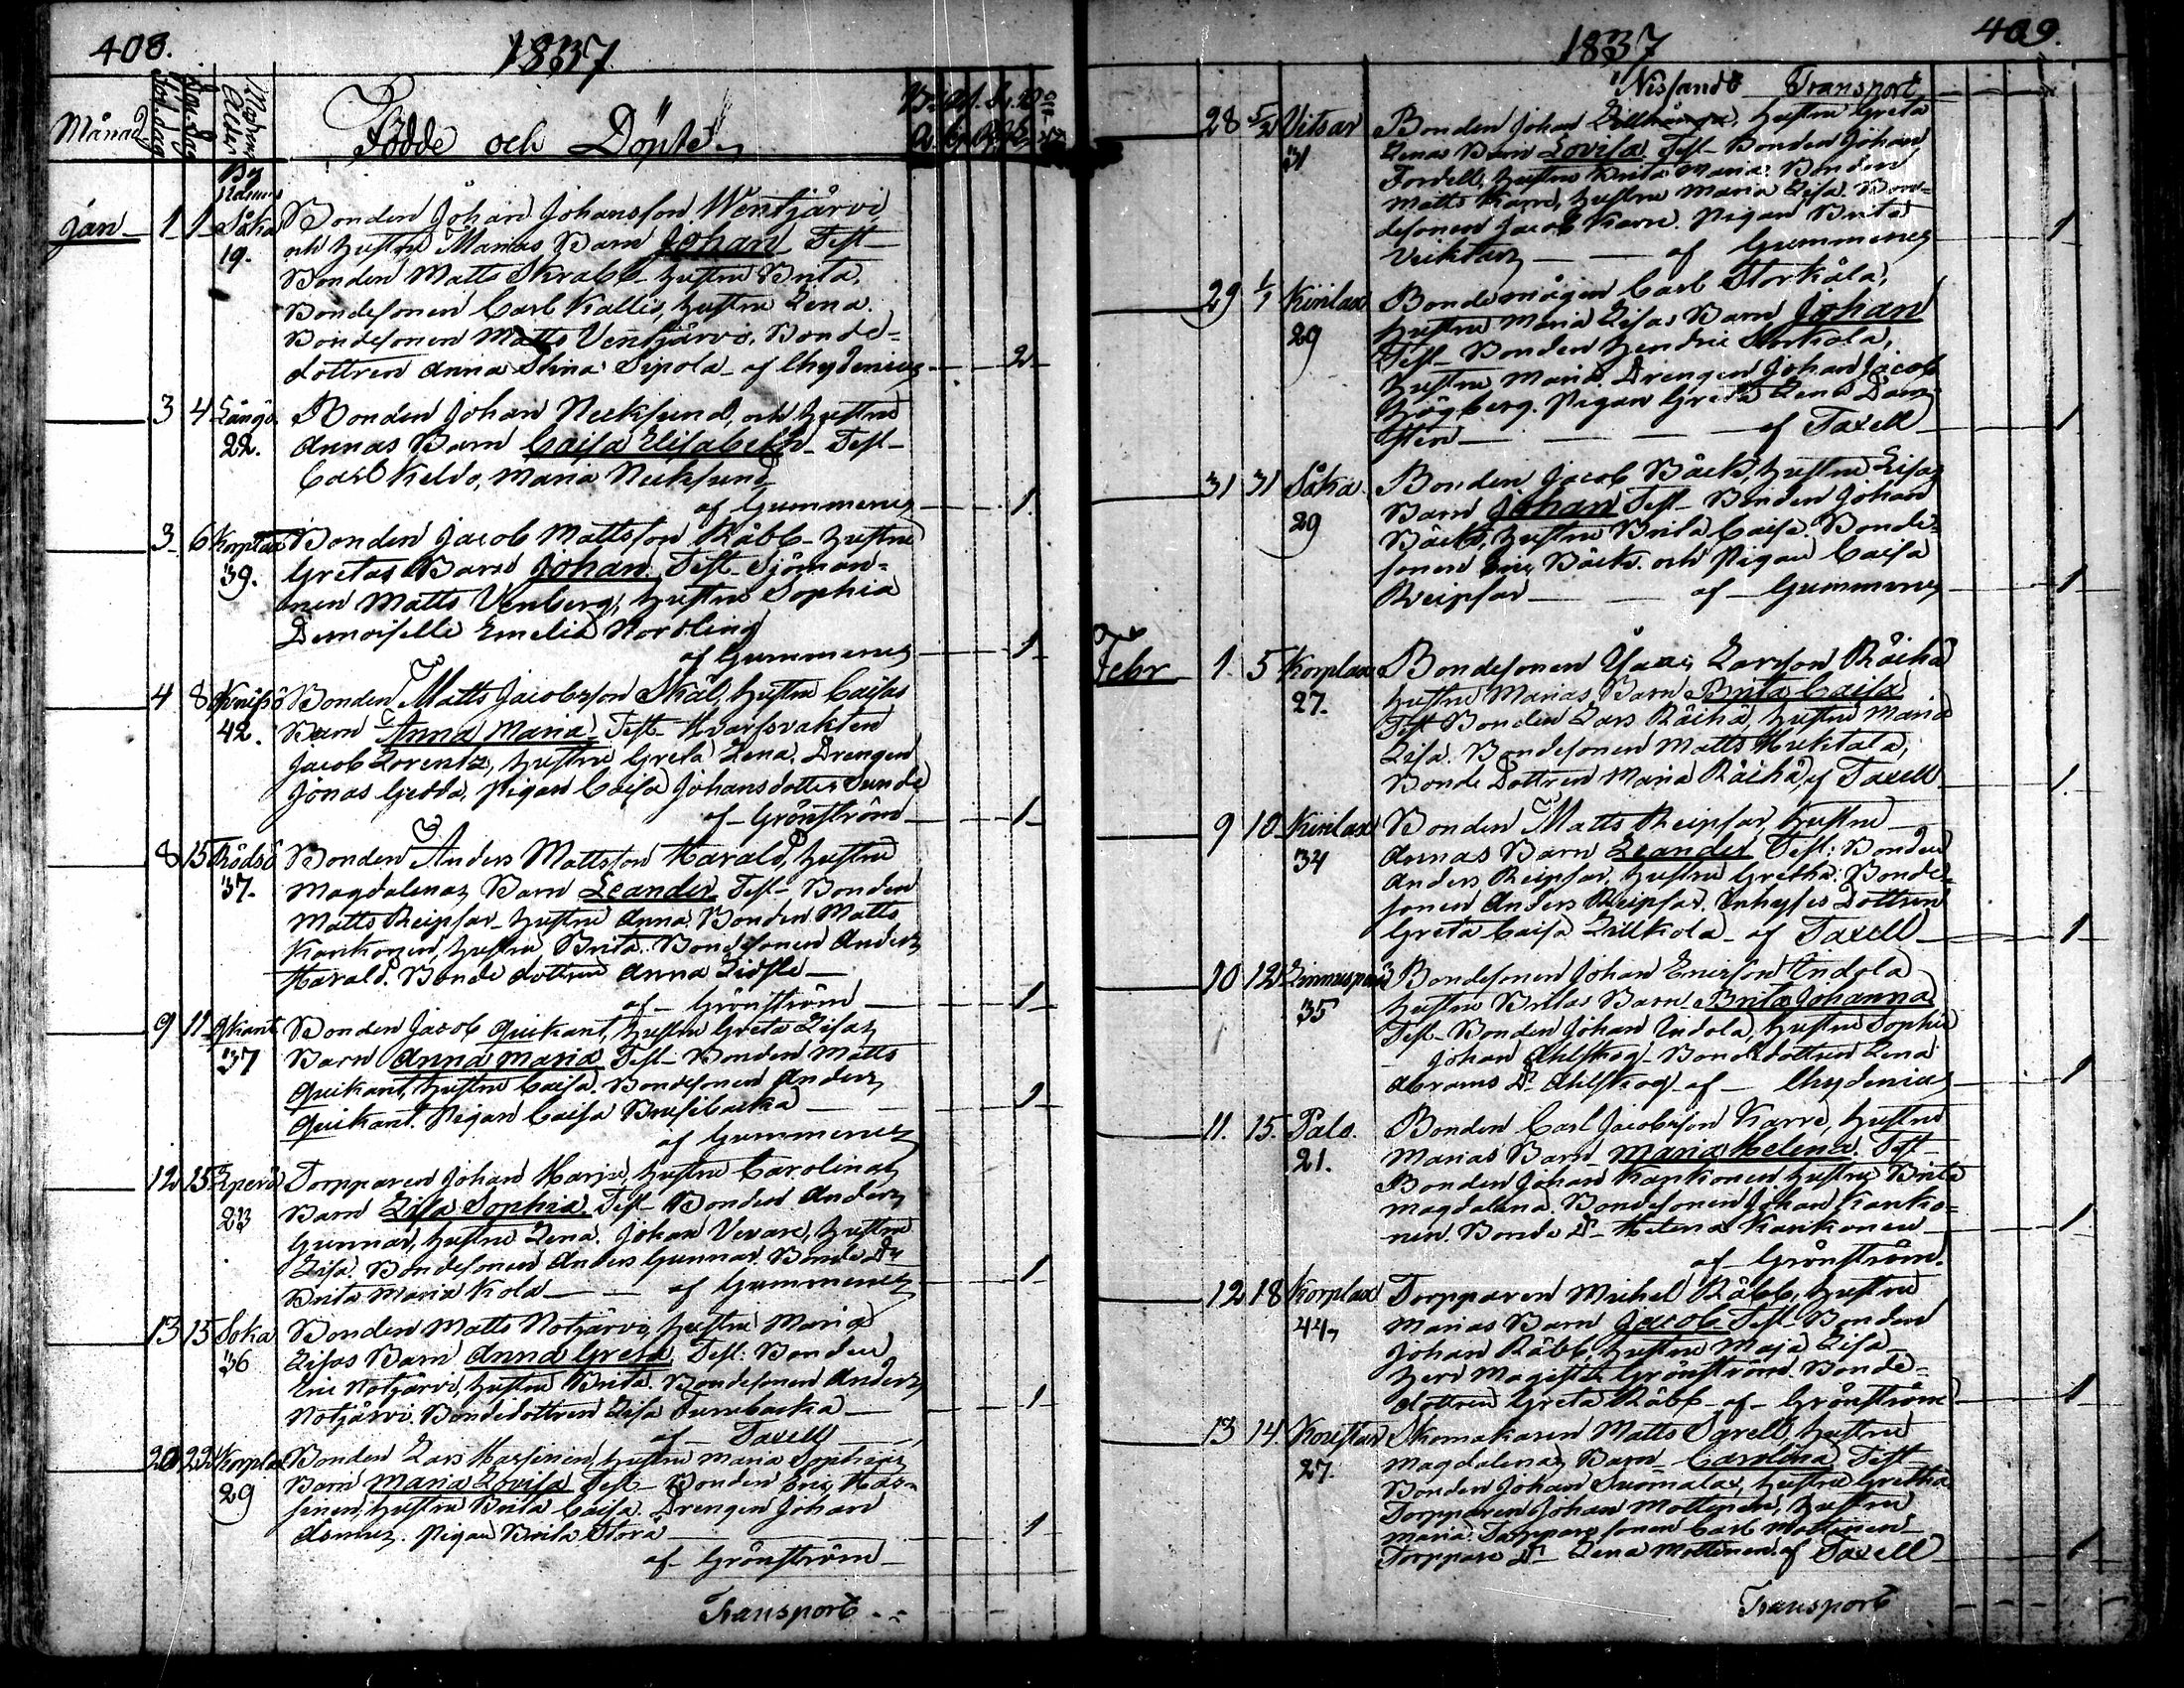 408.
1837
Månad
Föd. dag
Döp. Dag
Modrens Ålder
By
Födde och Döpte
Jan 1 1 Såka Bonden Johan Johansson Wentjärvi
19. och hustru Marias Barn Johan Test
Bonden Matts Skrabb hustru Brita,
Bondesonen Carl Kallis, hustru Lena.
Bondesonen Matts Ventjärvi, Bonde=
dottren Anna Stina Sipola af Chydenius 2
3 4 Långö. Bonden Johan Neeksund, och hustru
22. Annas Barn Caisa Elisabeth Test
Carl Keldo, Maria Neeksund
af Gummerus 1
3 6 Korplax Bonden Jacob Mattsson Råbb hustru
39. Gretas Barn Johan Test Sjöman=
nen Matts Venberg, hustru Sophia
Demoiselle Emelie Nordling
af Gummerus 1
4 8 Knifsö Bonden Matts Jacobsson Skål, hustru Caisas
42. Barn Anna Maria Test
Jacob Lorentz, hustru Greta Lena. Drengen
Jonas Gedda, Pigan Caisa Johansdotter Sunde
af Grönström 1
8 15 Rödsö Bonden Anders Mattsson Harald, hustru
37. Magdalenas Barn Leander Test Bonden
Matts Reipsar hustru Anna, Bonden Matts
Kankonen, hustru Brita. Bondesonen Anders
Harald. Bonde dottren Anna Lidste
af Grönström 1
9 11 Qkant Bonden Jacob Quikant, hustru Greta Lisas
37 Barn Anna Maria Test Bonden Matts
Quikant, hustru Caisa. Bondesonen Anders
Quikant. Pigan Caisa Brusibacka 1
af Gummerus
12 15 Eperö Torpparen Johan Harju, hustru Carolinas
23 Barn Lisa Sophia Test Bonden Anders
Gunnar, hustru Lena. Johan Verare, hustru
Lisa. Bondesonen Anders Gunnar. Bonde Dr
Brita Maria Kola af Gummerus 1
13 15 Soka Bonden Matts Notjärvi, hustru Maria
36 Lisas Barn Anna Greta Test. Bonden
Eric Notjärvi, hustru Brita. Bondesonen Anders
Notjärvi. Bondedottren Lisa Furubacka 1
af Taxell
20 22 Korplax Bonden Lars Hassinen, hustru Maria Sophias
29 Barn Maria Lovisa Test Bonden Eric Has=
sinen, hustru Brita Caisa. Drengen Johan
Asmus. Pigan Brita Storå 1
af Grönström
Transport
409.
1837
Transport
28 5/2 Vitsar Bonden Johan hustru Greta
31 Lenas Barn Lovisa Test Bonden Johan
Fordell, hustru Brita Maria. Bonden
Matts Karre, hustru Maria Lisa. Bon=
desonen Jacob Karre. Pigan Brita
af Gummerus 1
29 1/1 Kirilax Bondemågen Carl Storkåla,
29 hustru Maria Lisas Barn Johan
Test Bonden Hendric Storkola,
hustru Maria. Drengen Johan Jacob
Högberg. Pigan Greta Lena Dam=
sten af Taxell 1
31 31 Såka Bonden Jacob Bäck, hustru Lisas
29 Barn Johan Test Bonden Johan
Bäck, hustru Brita Caisa. Bonde=
sonen Eric Bäck och Pigan Caisa
Reipsar af Gummerus 1
Febr 1. 5 Korplax Bondesonen Isaac Larsson Räihä
27. hustru Marias Barn Brita Caisa
Test Bonden Lars Räihä, hustru Maria
Lisa. Bondesonen Matts Huktala,
Bonde Dottren Maria Räihä, af Taxell 1.
9 10 Kirilax Bonden Matts Reipsar, hustru
34 Annas Barn Leander Test: Bonden
Anders Reipsar, hustru Gretha. Bonde=
sonen Anders Reipsar. Inhyses Dottren
Greta Caisa Lillkola af Taxell 1
10 12 Linnusperä Bondesonen Johan Ericsson Indola
35 hustru Britas Barn Brita Johanna
Test Bonden Johan Indola, hustru Sophia
Johan Ahlskog Bondedottren Lena
Abrams Dr Ahlskog af Chydenius 1
11. 15. Palo. Bonden Carl Jacobsson Karre, hustru
21. Marias Barn Maria Helena. Test
Bonden Johan Kankonen, hustru Brita
Magdalena. Bondesonen Johan Kanko=
nen. Bonde Dr Helena Kankonen 1
af Grönström.
12 18 Korplax Torpparen Michel Råbb, hustru
44 Marias Barn Jacob Test Bonden
Johan Råbb, hustru Maja Lisa
Herr Magister Grönström. Bonde=
dottren Greta Råbb af Grönström 1
13 14. Skomakaren Matts Sarell, hustru
27. Magdalenas Barn Carolina Test
Bonden Johan Suomalax, hustru Gretha
Torpparen Johan Mottonen, hustru
Maria. Torppare sonen Carl Mottonen
Torppare Dr Lena Mottonen af Taxell 1
Transport